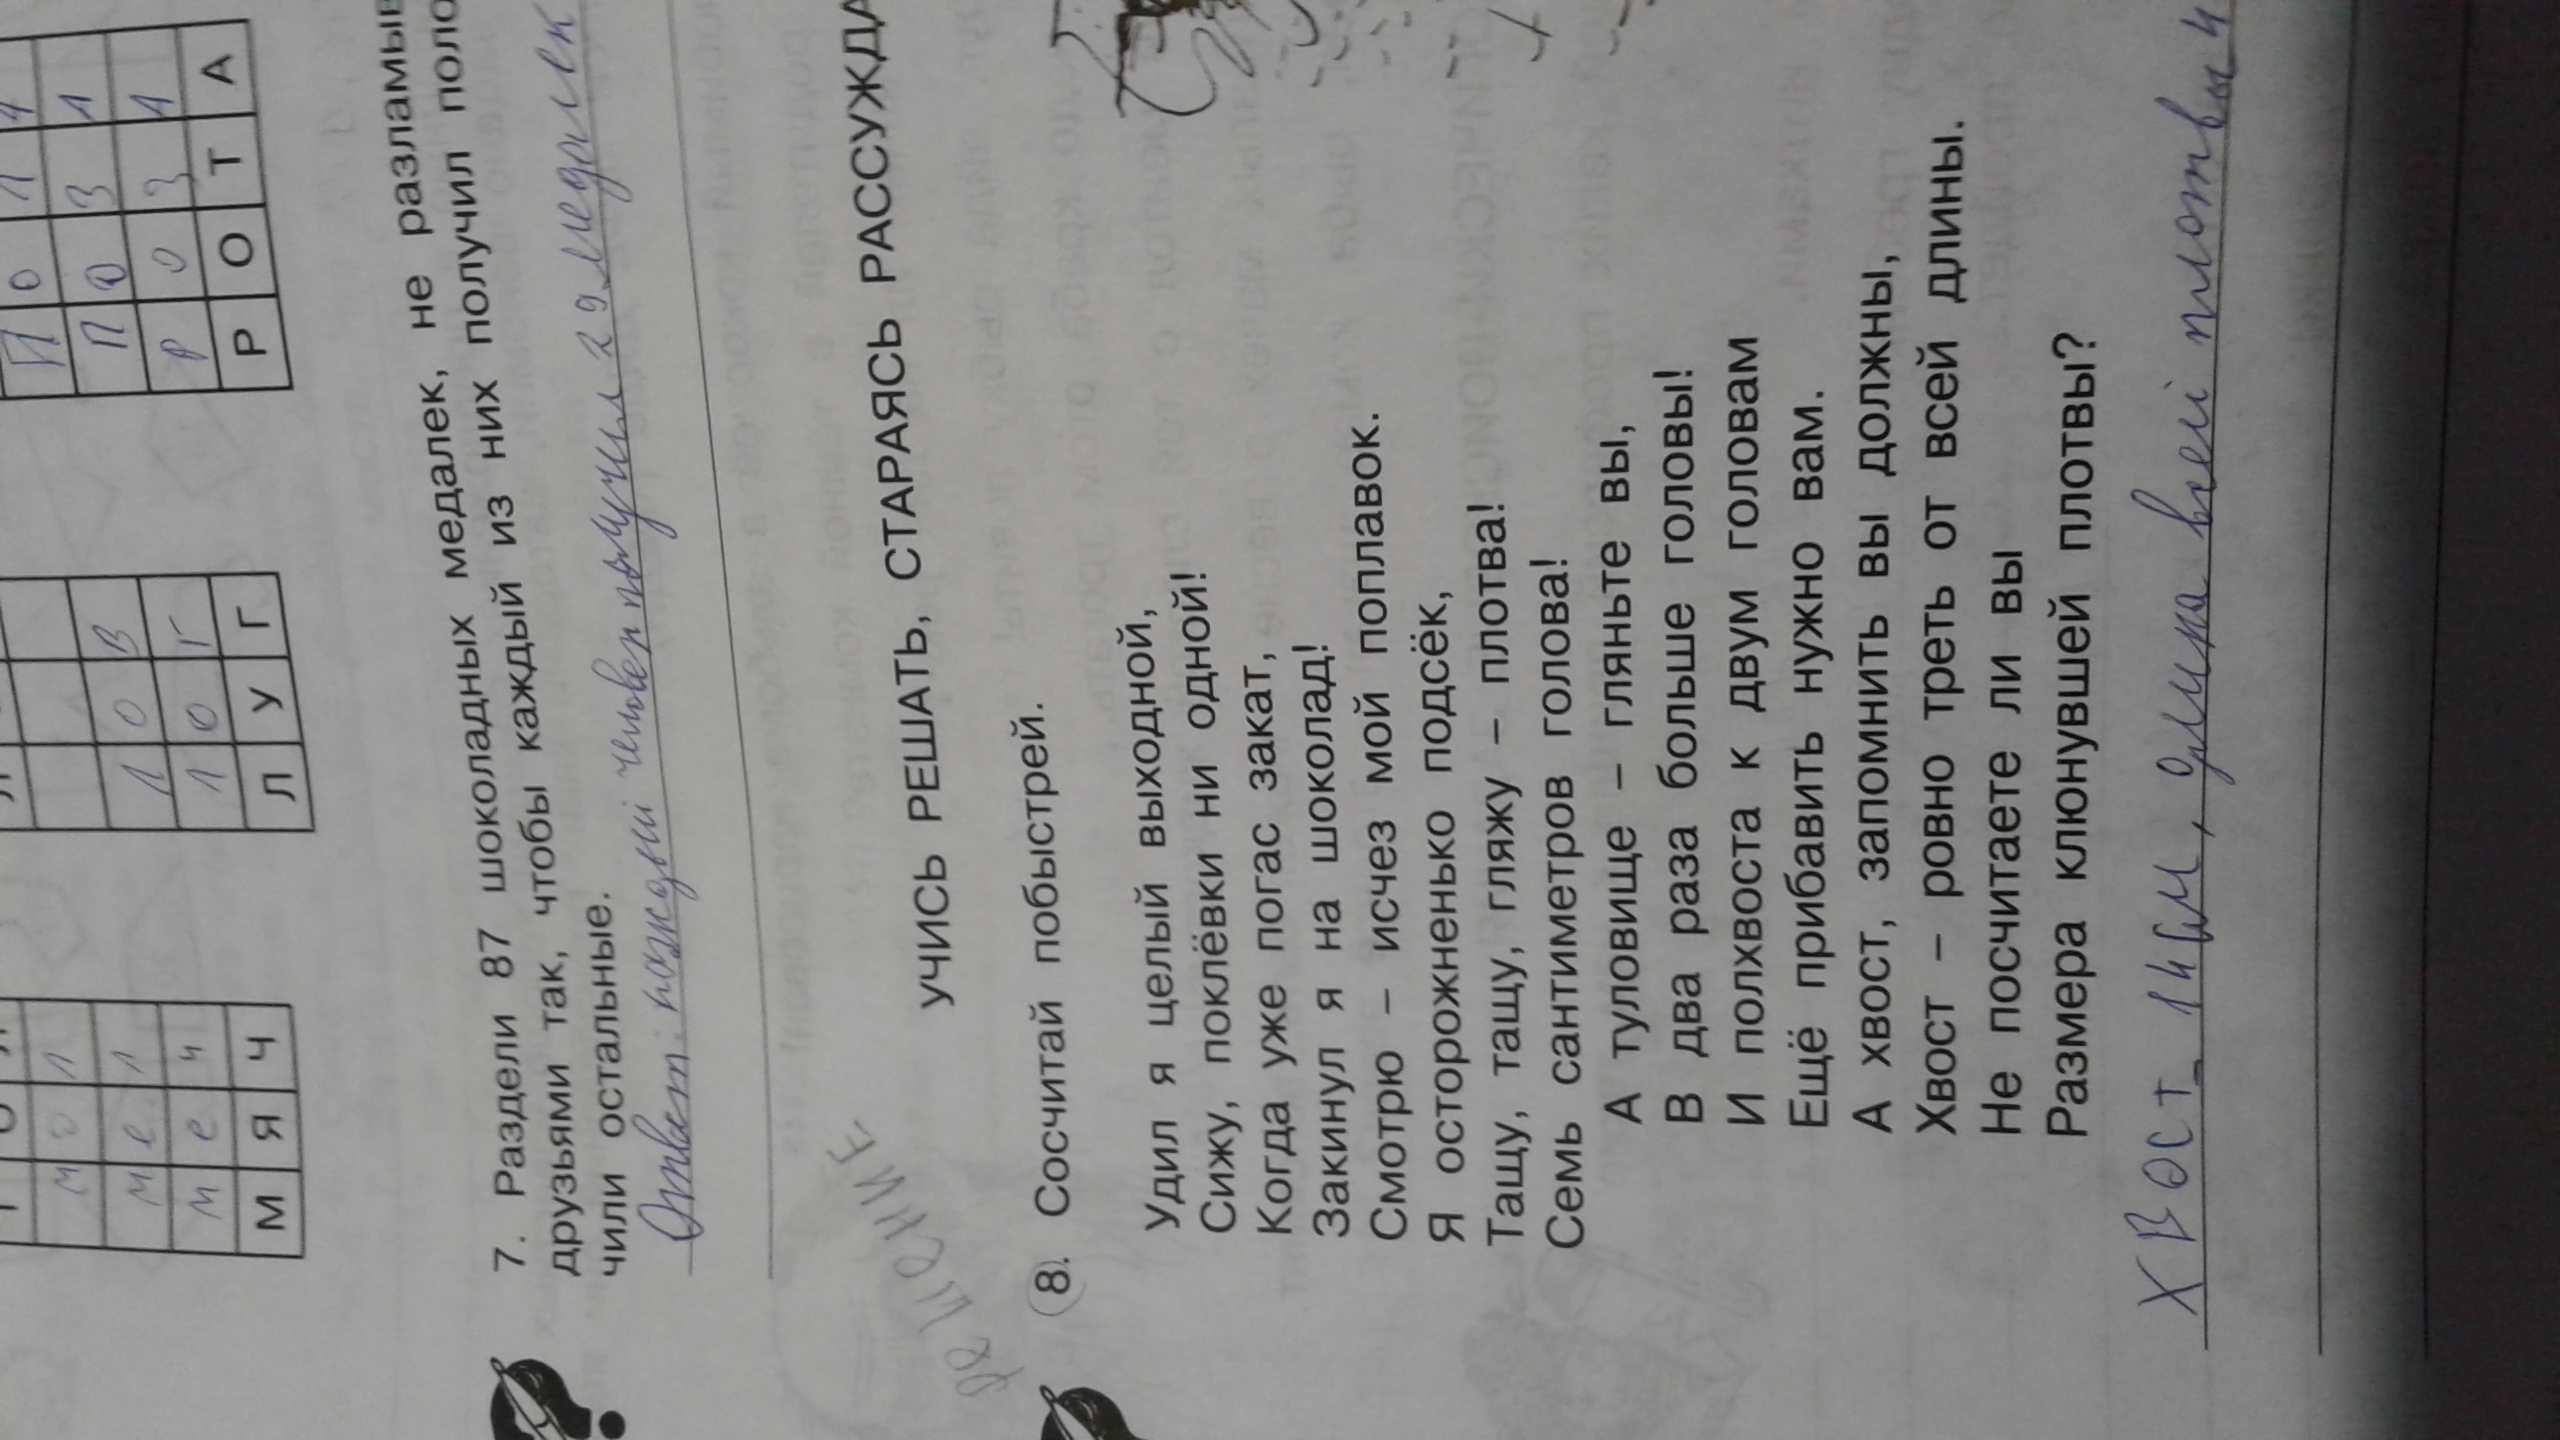 М о л
М е л
М е ч
М Я Ч
л о в
л о г
Л У Г
П о л
П о з
Р о з
Р О Т А
7. Раздели 87 шоколадных медалек, не разламыв
друзьями так, чтобы каждый из них получил поло
чили остальные.
Ответ: каждый человек получил 29 медалек
УЧИСЬ РЕШАТЬ, СТАРАЯСЬ РАССУЖДА
решение
8. Сосчитай побыстрей.
Удил я целый выходной,
Сижу, поклёвки ни одной!
Когда уже погас закат,
Закинул я на шоколад!
Смотрю – исчез мой поплавок.
Я осторожненько подсёк,
Тащу, тащу, гляжу – плотва!
Семь сантиметров голова!
А туловище – гляньте вы,
В два раза больше головы!
И полхвоста к двум головам
Ещё прибавить нужно вам.
А хвост, запомнить вы должны,
Хвост – ровно треть от всей длины.
Не посчитаете ли вы
Размера клюнувшей плотвы?
Хвост - 14см, длина всей плотвы 4